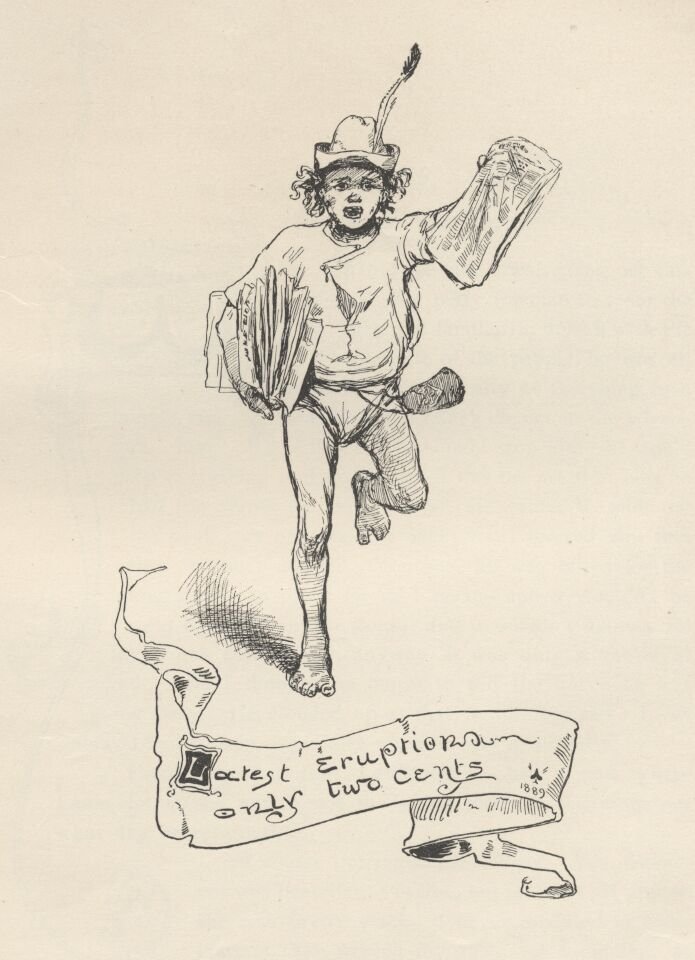 Latest Eruption
only two cents
1889